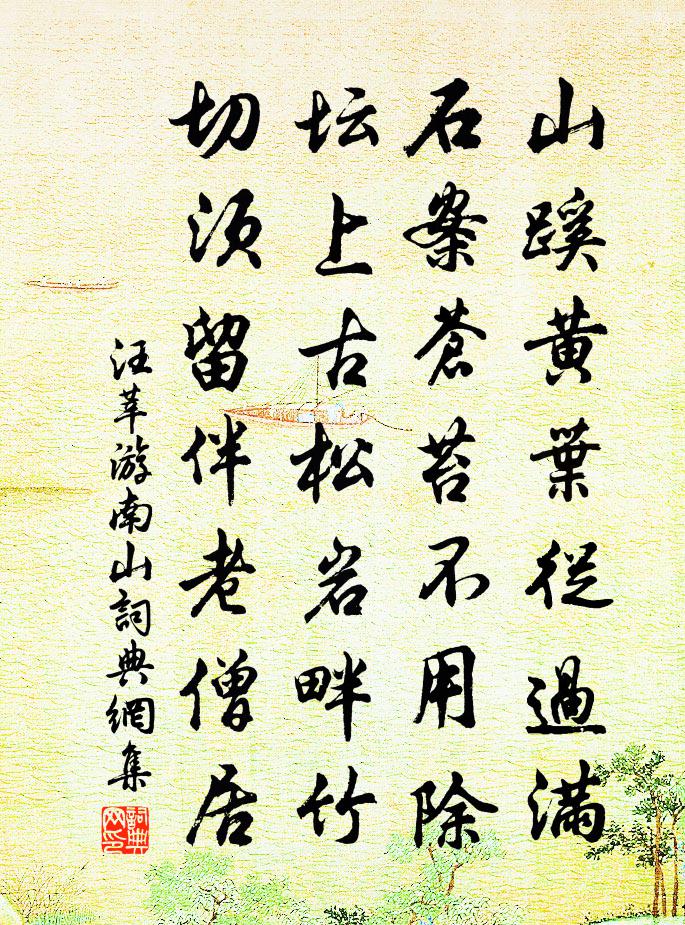 山蹊黄葉從過滿
石案蒼苔不用除
坛上古松岩畔竹
切须留伴老僧居
汪莘游南山詞典網集
詞典网印